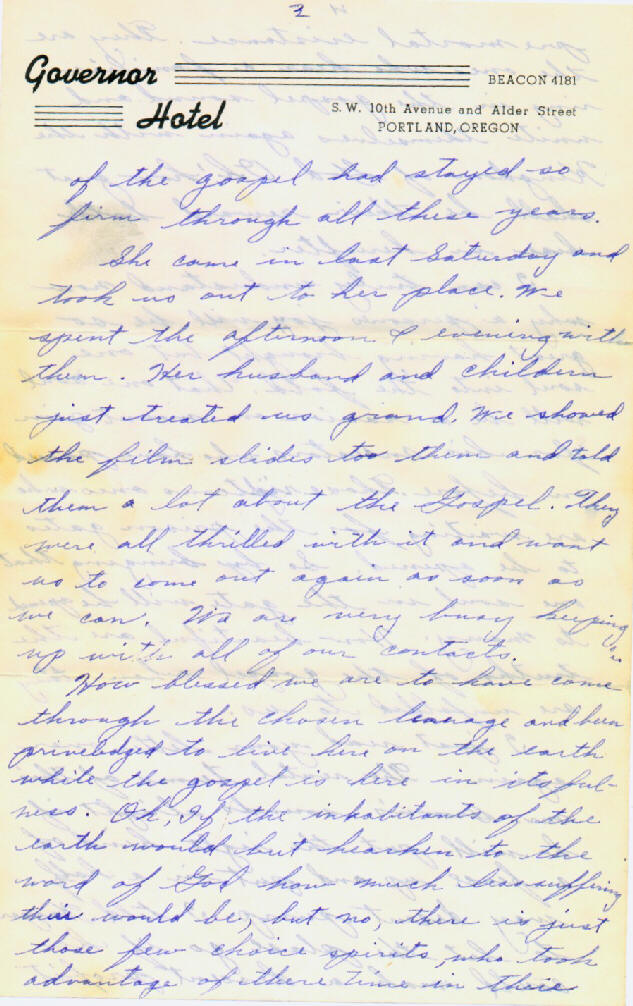 2
Governor Hotel
BEACON 4181
S.W. 10th Avenue and Alder Street
PORTLAND, OREGON
of the gospel had stayed so
firm through all these years.
She came in last Saturday and
took us out to her place. We
spent the afternoon & evening with
them. Her husband and childern
just treated us grand. We showed
the film slides too them and told
them a lot about the Gospel. They
were all thrilled with it and want
us to come out again as soon as
we can. We are very busy keeping
up with all of our contacts.
How blessed we are to have come
through the chosen leneage and been
priveledged to live here on the earth
while the gospel is here in its ful-
ness. Oh, If the inhabitants of the
earth would but hearken to the
word of God how much less suffering
their would be, but no, there is just
those few choice spirits, who took
advantage of there time in their